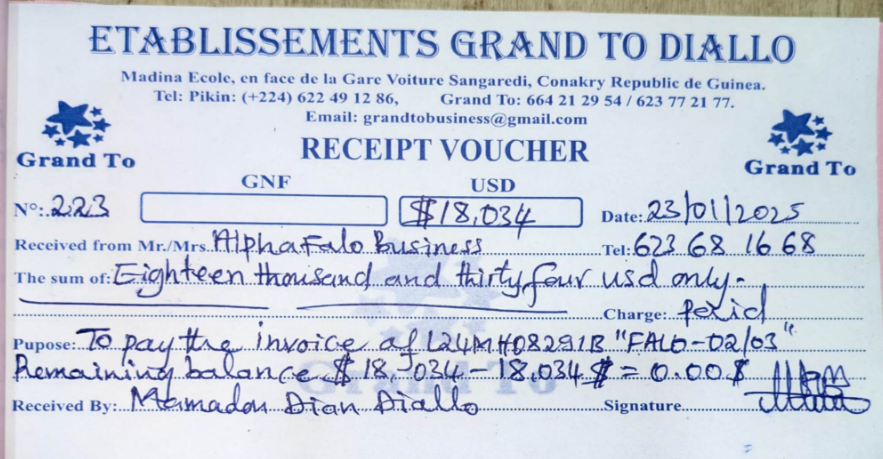 ETABLISSEMENTS GRAND TO DIALLO
Madina Ecole, en face de la Gare Voiture Sangaredi, Conakry Republic de Guinea.
Tel: Pikin: (+224) 622 49 12 86, Grand To: 664 21 29 54 / 623 77 21 77.
Email: grandtobusiness@gmail.com
Grand To RECEIPT VOUCHER Grand To
GNF USD
N°: 223 $18,034 Date: 23/01/2025
Received from Mr./Mrs. Alpha Falo Business Tel: 623 68 16 68
The sum of: Eighteen thousand and thirty four usd only-
Charge:
Pupose: To pay the invoice of L24MH08291B "FALO-02/03"
Remaining balance $ 18,034-18,034 $ = 0.00 $
Received By: Mamadou Dian Diallo Signature